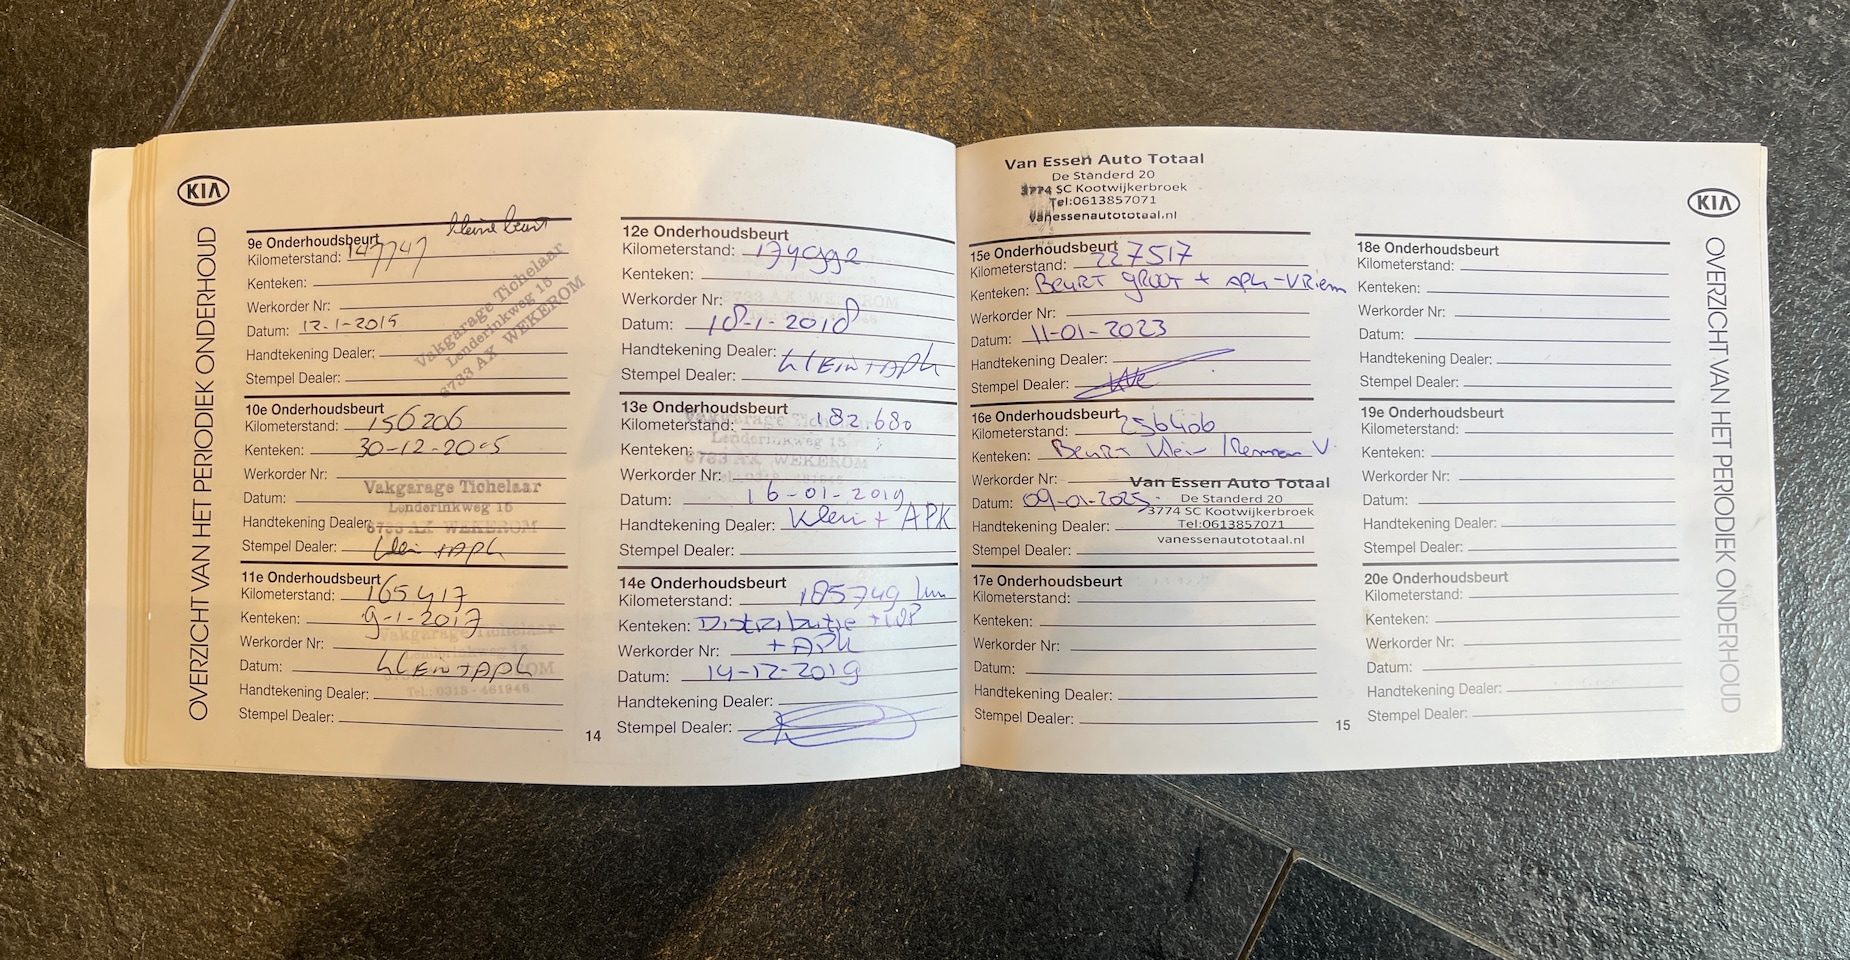 KIA
OVERZICHT VAN HET PERIODIEK ONDERHOUD
kleine beurt
9e Onderhoudsbeurt
Kilometerstand: 147747
Kenteken:
Werkorder Nr:
Datum: 12-1-2015
Handtekening Dealer:
Stempel Dealer:
Vakgarage Tichelaar
Lenderinkweg 15
6733 AX WEKEROM
10e Onderhoudsbeurt
Kilometerstand: 156206
Kenteken: 30-12-2005
Werkorder Nr:
Datum:
Vakgarage Tichelaar
Lenderinkweg 15
6733 AX WEKEROM
Handtekening Dealer:
Stempel Dealer: klein + APK
11e Onderhoudsbeurt
Kilometerstand: 165417
Kenteken: 9-1-2017
Vakgarage Tichelaar
Lenderinkweg 15
Werkorder Nr:
Datum: klEin + APK
Tel.: 0318 - 461946
Handtekening Dealer:
Stempel Dealer:
14
12e Onderhoudsbeurt
Kilometerstand:
Kenteken:
Werkorder Nr:
6733 AX WEKEROM
Datum: 18-1-2018
Handtekening Dealer: klEin + APK
Stempel Dealer:
13e Onderhoudsbeurt
Kilometerstand: 182.680
Vakgarage Tichelaar
Lenderinkweg 15
6733 AX WEKEROM
Kenteken:
Werkorder Nr:
Datum: 16-01-2019
Handtekening Dealer: Klein + APK
Stempel Dealer:
14e Onderhoudsbeurt
Kilometerstand: 185749 km
Kenteken: Distributie + WP
Werkorder Nr: + APK
Datum: 14-12-2019
Handtekening Dealer:
Stempel Dealer:
Van Essen Auto Totaal
De Standerd 20
3774 SC Kootwijkerbroek
Tel:0613857071
vanessenautototaal.nl
15e Onderhoudsbeurt
Kilometerstand: 227517
Kenteken: Beurt groot + APK - VRiem
Werkorder Nr:
Datum: 11-01-2023
Handtekening Dealer:
Stempel Dealer:
16e Onderhoudsbeurt
Kilometerstand: 256406
Kenteken: Beurt klein Remmen V.
Werkorder Nr:
Datum: 09-01-2025
Van Essen Auto Totaal
De Standerd 20
3774 SC Kootwijkerbroek
Tel:0613857071
vanessenautototaal.nl
Handtekening Dealer:
Stempel Dealer:
17e Onderhoudsbeurt
Kilometerstand:
Kenteken:
Werkorder Nr:
Datum:
Handtekening Dealer:
Stempel Dealer:
15
18e Onderhoudsbeurt
Kilometerstand:
Kenteken:
Werkorder Nr:
Datum:
Handtekening Dealer:
Stempel Dealer:
19e Onderhoudsbeurt
Kilometerstand:
Kenteken:
Werkorder Nr:
Datum:
Handtekening Dealer:
Stempel Dealer:
20e Onderhoudsbeurt
Kilometerstand:
Kenteken:
Werkorder Nr:
Datum:
Handtekening Dealer:
Stempel Dealer:
KIA
OVERZICHT VAN HET PERIODIEK ONDERHOUD